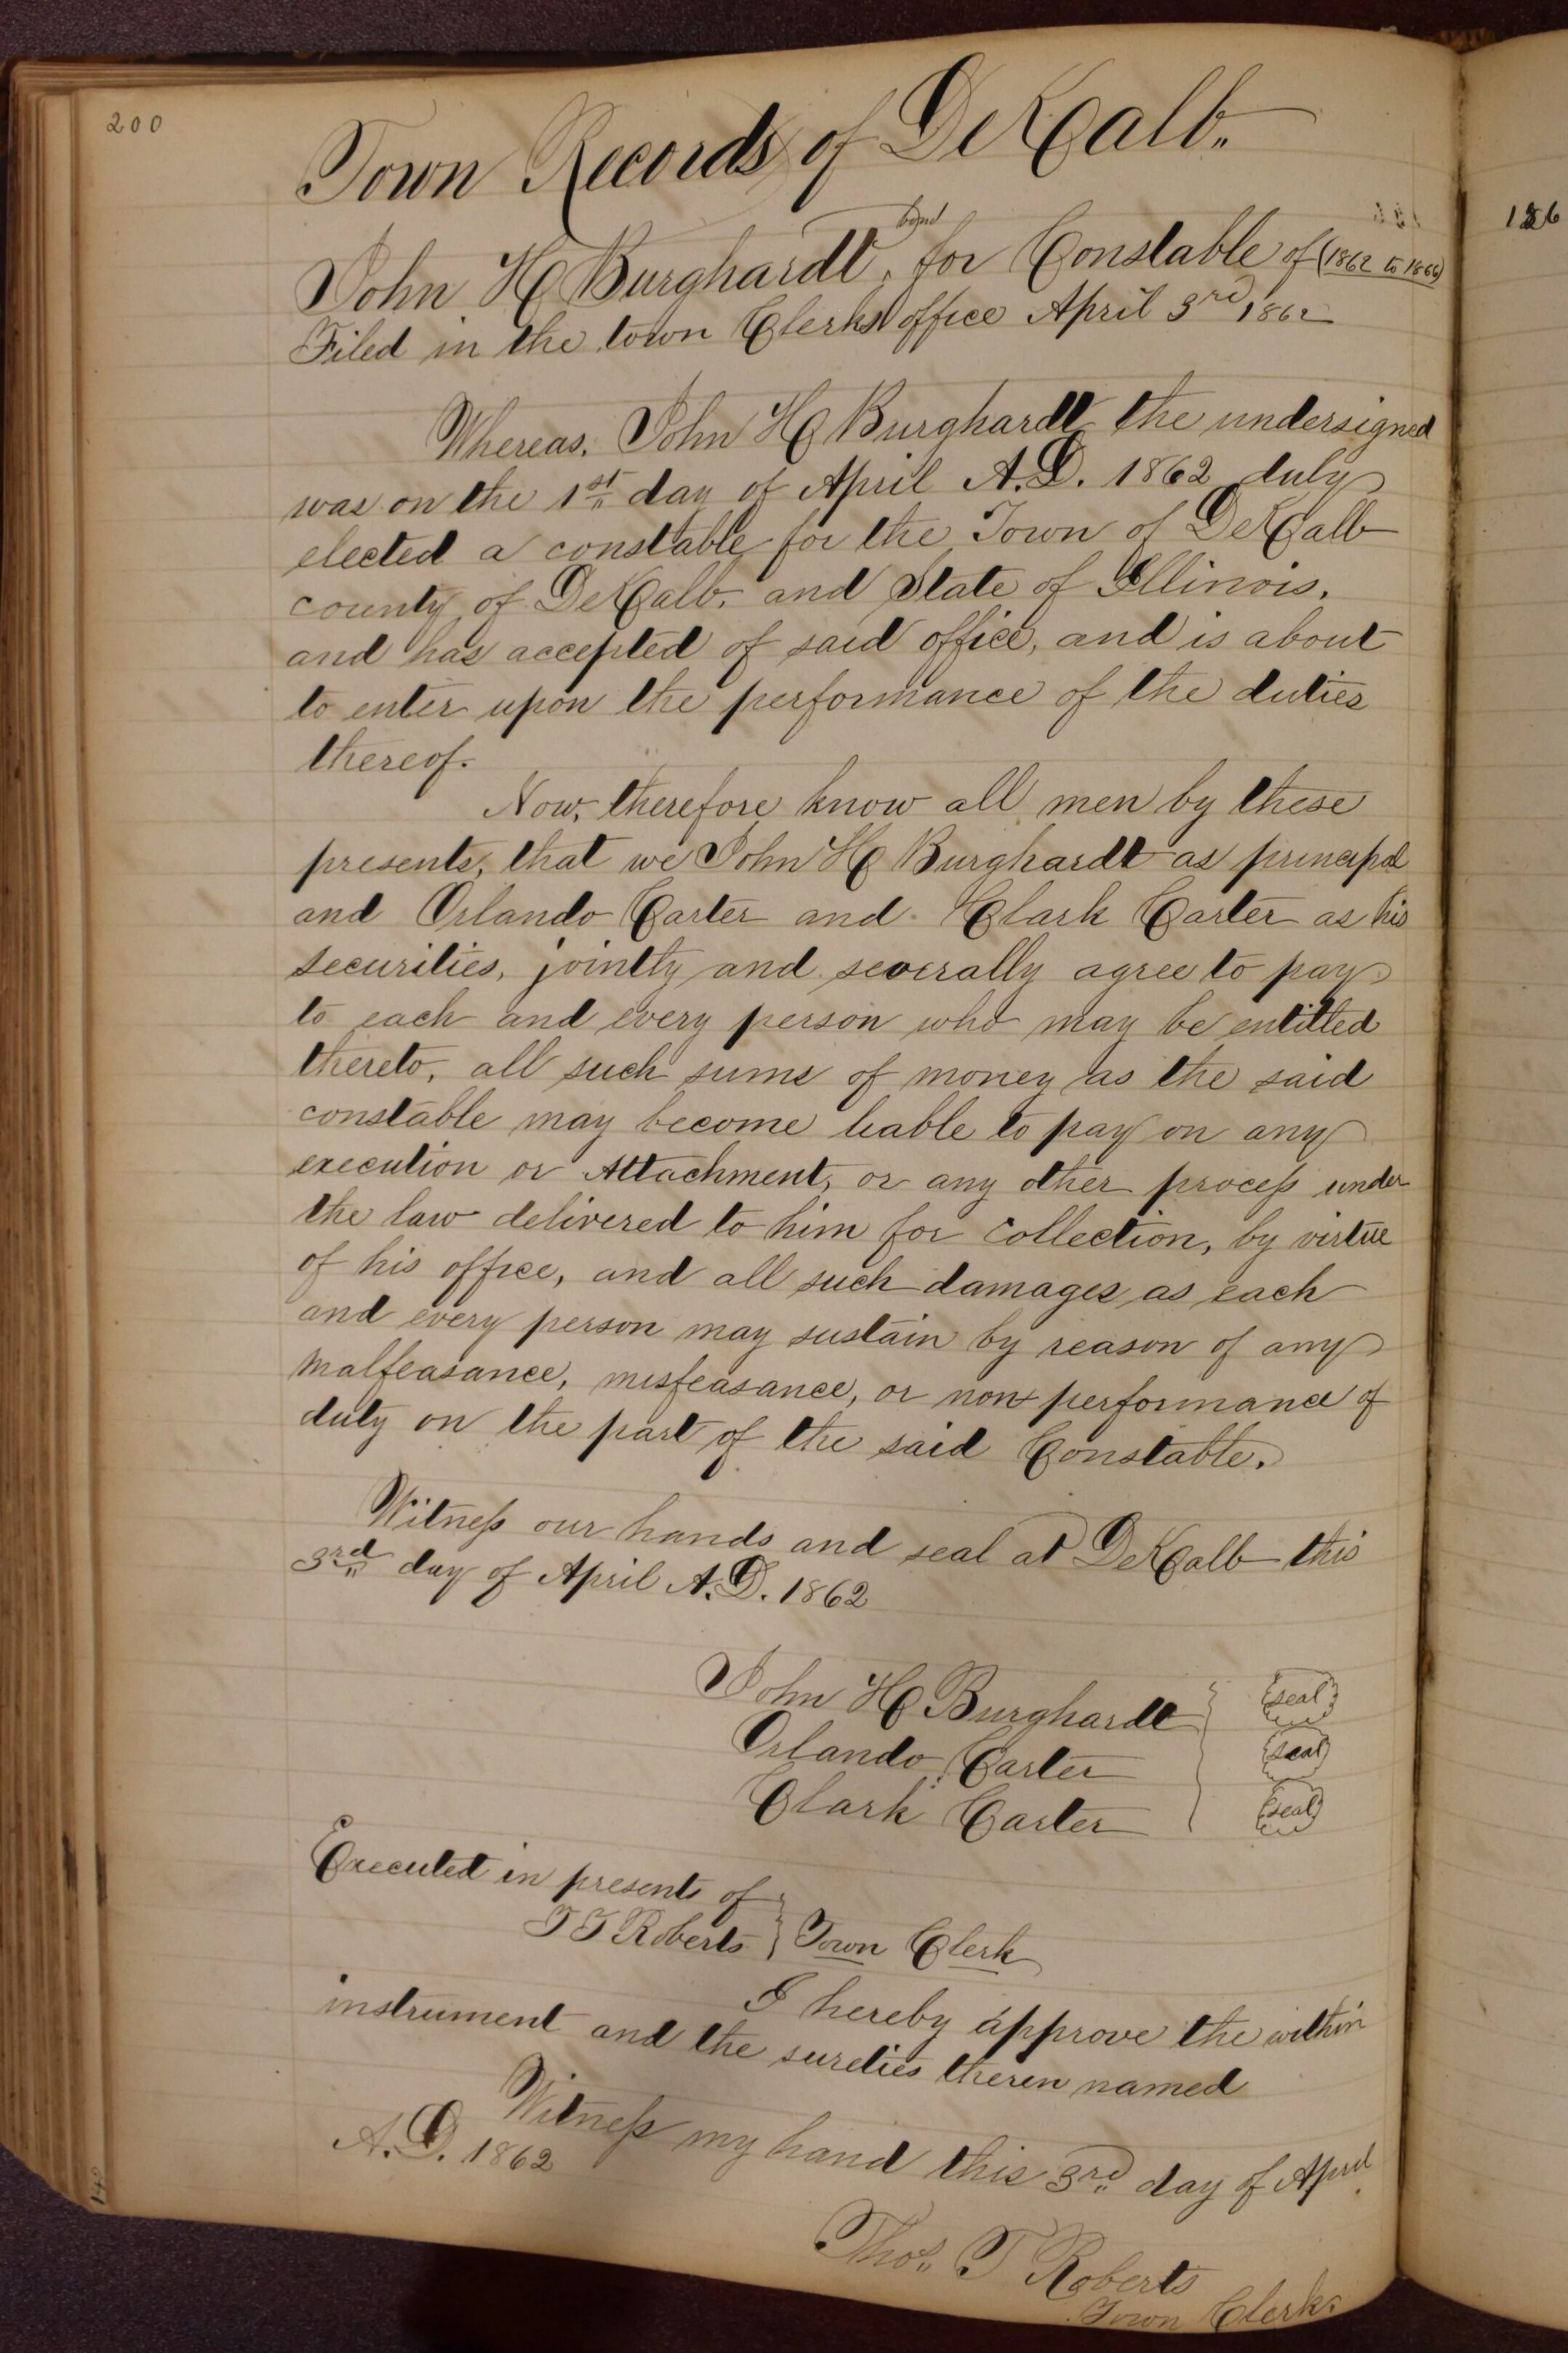 200
Town Records of DeKalb.
bond
John H Burghardt, for Constable of (1862 to 1866)
Filed in the town Clerks office April 3rd 1862
Whereas, John H Burghardt the undersigned
was on the 1st day of April A.D. 1862 duly
elected a constable for the Town of DeKalb
county of DeKalb, and State of Illinois,
and has accepted of said office, and is about
to enter upon the performance of the duties
thereof.
Now, therefore know all men by these
presents, that we John H Burghardt as principal
and Orlando Carter and Clark Carter as his
securities, jointly and severally agree to pay
to each and every person who may be entitled
thereto, all such sums of money as the said
constable may become liable to pay on any
execution or Attachment, or any other process under
the law delivered to him for collection, by virtue
of his office, and all such damages as each
and every person may sustain by reason of any
malfeasance, misfeasance, or non performance of
duty on the part of the said Constable.
Witness our hands and seal at DeKalb this
3rd day of April A.D. 1862
John H Burghardt seal
Orlando Carter seal
Clark Carter seal
Executed in presents of
T T Roberts } Town Clerk
I hereby approve the within
instrument and the sureties therein named
Witness my hand this 3rd day of April
A.D. 1862
Thos. T Roberts
Town Clerk.